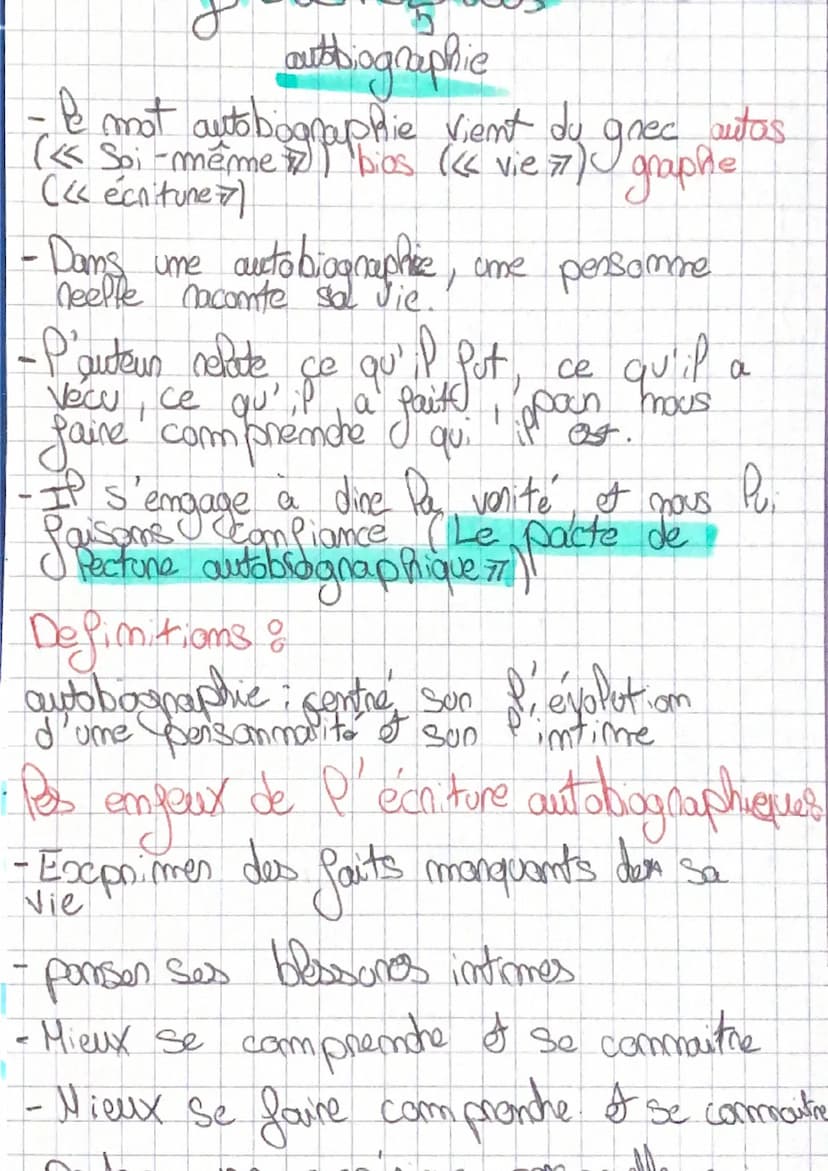 autobiographie
- le mot autobiographie vient du grec autos
(<< Soi-même >>) bios (<< vie >>) graphe
(<< écriture >>)
- Dans une autobiographie, une personne
reelle raconte sa vie.
- l'auteur relate ce qu'il fut, ce qu'il a
vécu, ce qu'il a fait, pour nous
faire comprendre qui il est.
- Il s'engage à dire la verité et nous lui
faisons confiance (Le pacte de
lecture autobiographique >>)
Definitions :
autobiographie : centré sur l'évolution
d'une personnalité et sur l'intime
les enjeux de l'écriture autobiographiques
- Exprimer des faits marquants de sa
vie
- panser ses blessures intimes
- Mieux se comprendre et se connaitre
- Mieux se faire comprendre et se connaitre